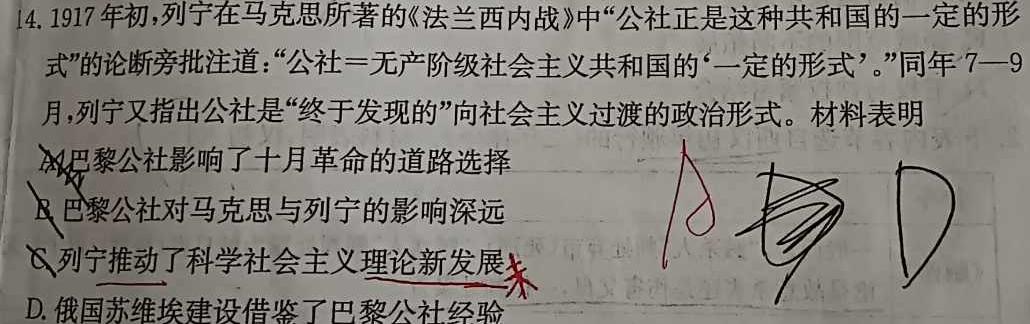 14. 1917年初,列宁在马克思所著的《法兰西内战》中“公社正是这种共和国的一定的形
式”的论断旁批注道:“公社=无产阶级社会主义共和国的‘一定的形式’。”同年7—9
月,列宁又指出公社是“终于发现的”向社会主义过渡的政治形式。材料表明
A.巴黎公社影响了十月革命的道路选择
B.巴黎公社对马克思与列宁的影响深远
C.列宁推动了科学社会主义理论新发展
D.俄国苏维埃建设借鉴了巴黎公社经验
A D